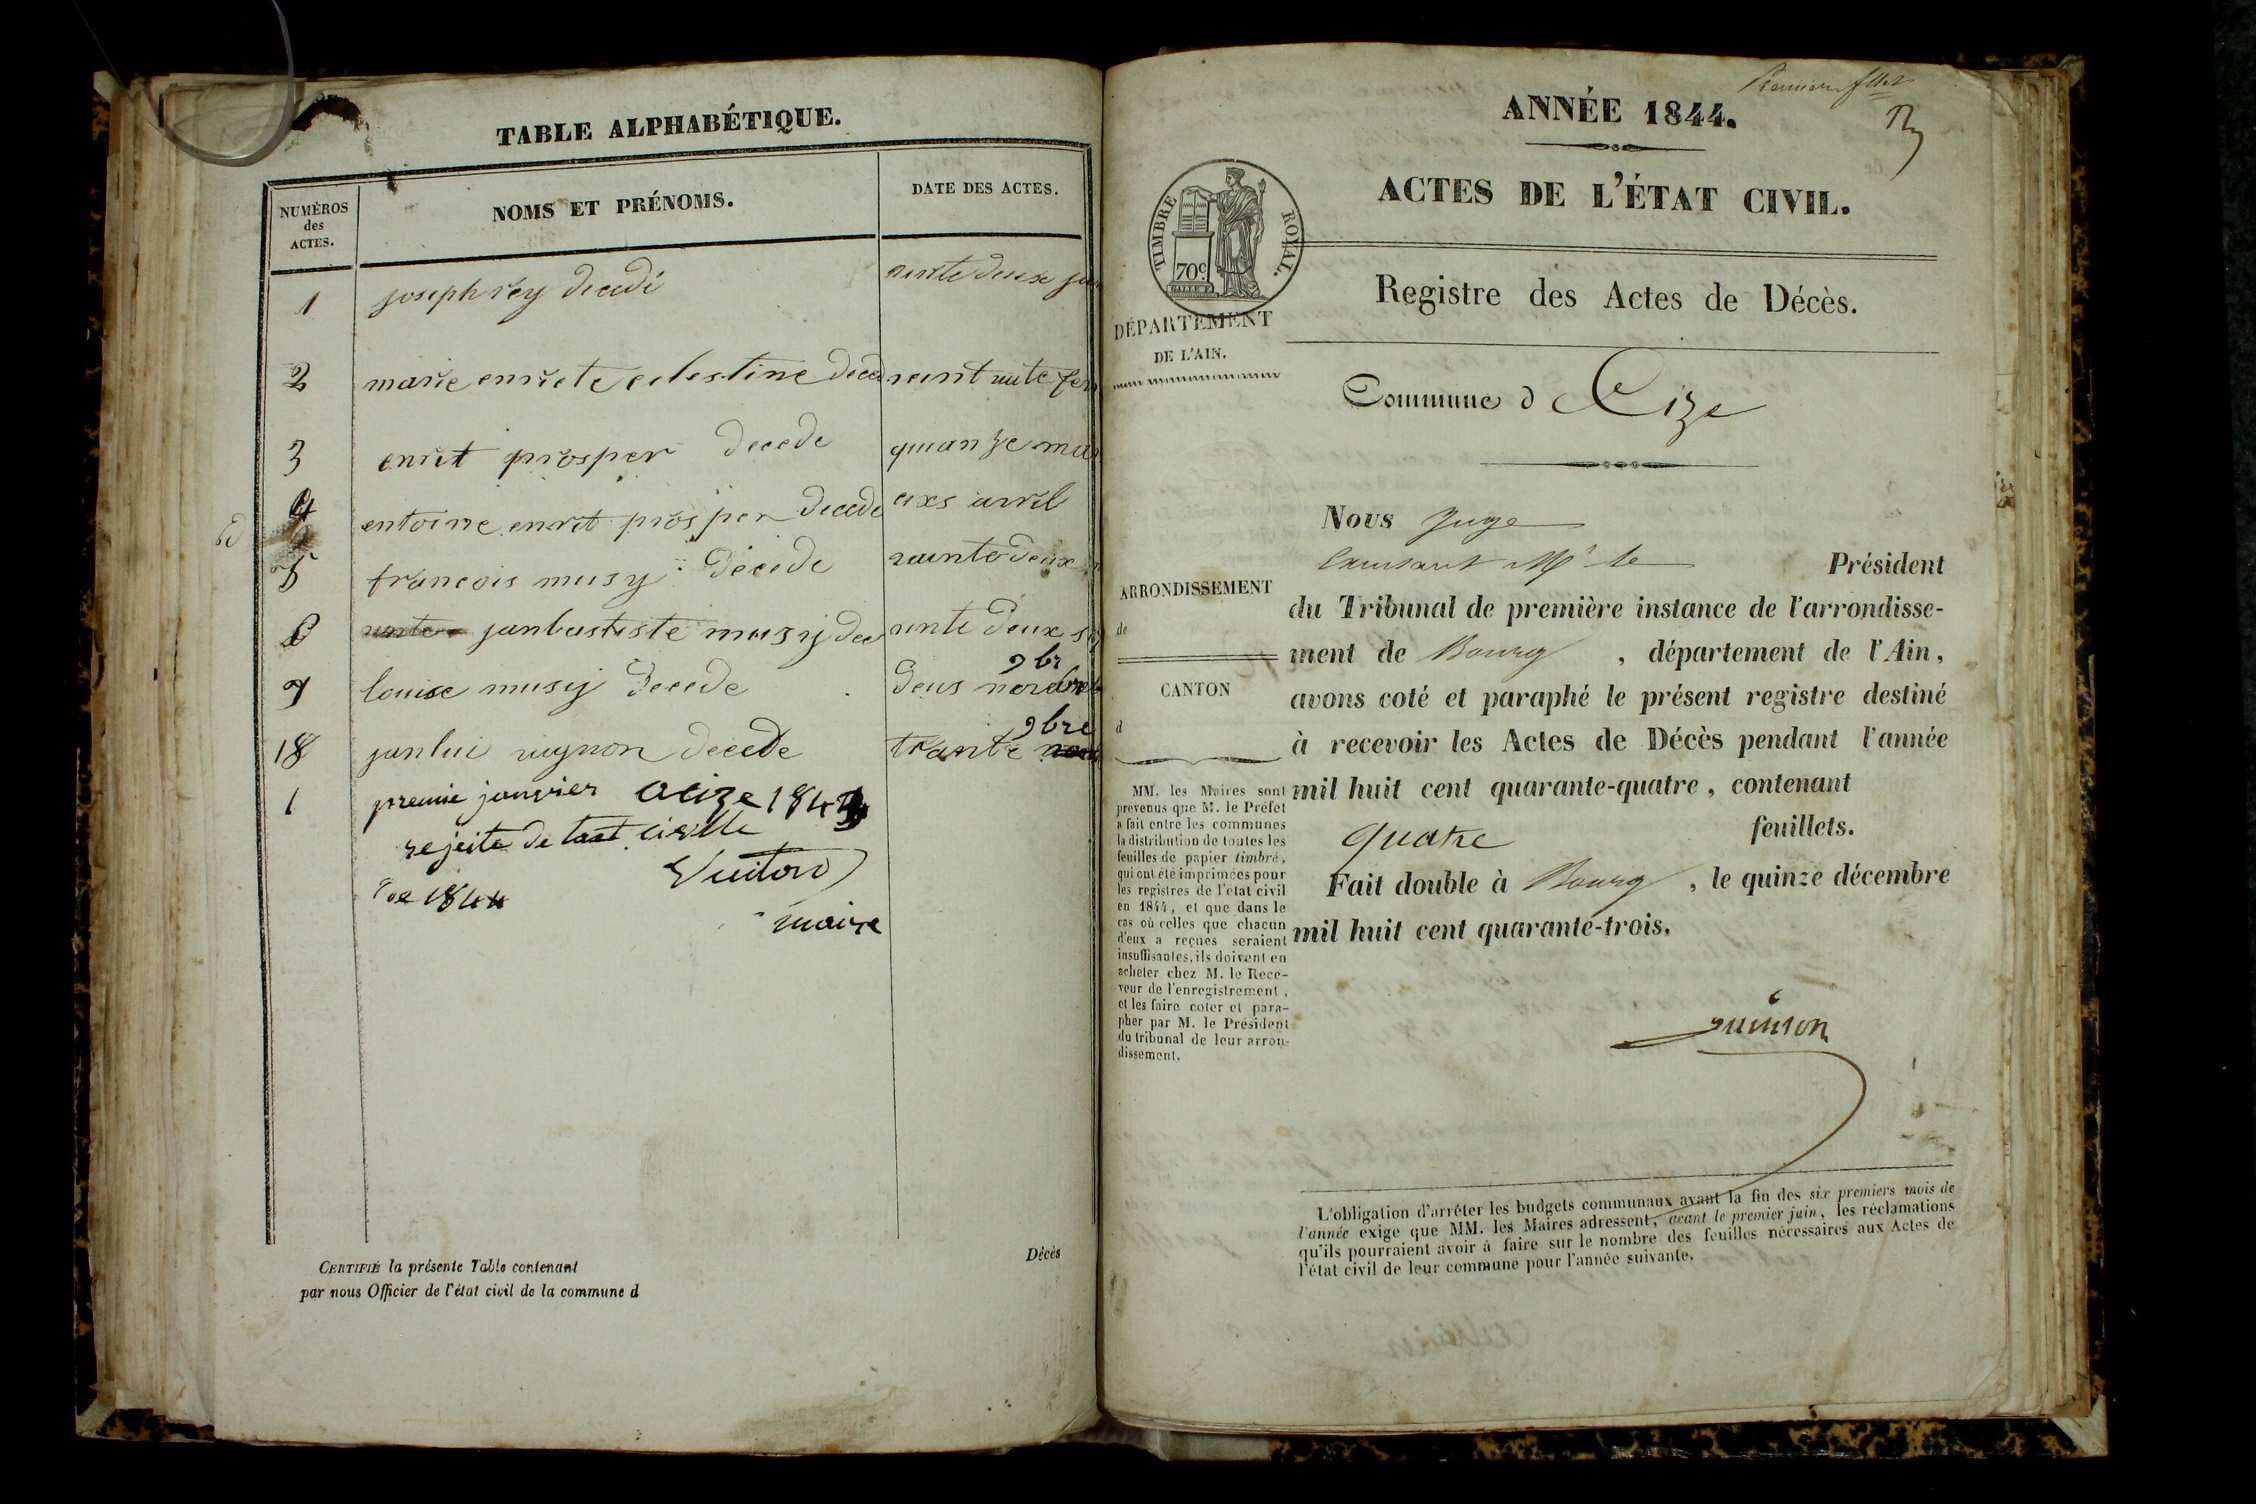 TABLE ALPHABÉTIQUE.
NUMÉROS
des
ACTES.
NOMS ET PRÉNOMS.
DATE DES ACTES.
1 joseph rey decedé vinte deux
2 marie enriete celestine deced
3 enriet prosper decede quanze
4 entoine enriet prosper decede avril
5 francois musy decede
6 janbastiste musy dec vinte deux
9br
7 louise musy decede deus
9bre
18 janlui vugnon decede trante
1 premie janvier a cize 1844
rejeite de civille
de 1844
maire
CERTIFIÉ la présente Table contenant
Décès
par nous Officier de l'état civil de la commune d
Premier
ANNÉE 1844.
ACTES DE L'ÉTAT CIVIL.
TIMBRE ROYAL.
70c
Registre des Actes de Décès.
DÉPARTEMENT
DE L'AIN.
Commune d Cize
Nous Juge
M. le Président
ARRONDISSEMENT
de
CANTON
d
du Tribunal de première instance de l'arrondisse-
ment de Bourg , département de l'Ain,
avons coté et paraphé le présent registre destiné
à recevoir les Actes de Décès pendant l'année
mil huit cent quarante-quatre, contenant
quatre feuillets.
Fait double à Bourg , le quinze décembre
mil huit cent quarante-trois.
MM. les Maires sont
prévenus que M. le Préfet
a fait entre les communes
la distribution de toutes les
feuilles de papier timbré,
qui ont été imprimées pour
les registres de l'état civil
en 1844, et que dans le
cas où celles que chacun
d'eux a reçues seraient
insuffisantes, ils doivent en
acheter chez M. le Rece-
veur de l'enregistrement,
et les faire coter et para-
pher par M. le Président
du tribunal de leur arron-
dissement.
L'obligation d'arrêter les budgets communaux avant la fin des six premiers mois de
l'année exige que MM. les Maires adressent, avant le premier juin, les réclamations
qu'ils pourraient avoir à faire sur le nombre des feuilles nécessaires aux Actes de
l'état civil de leur commune pour l'année suivante.